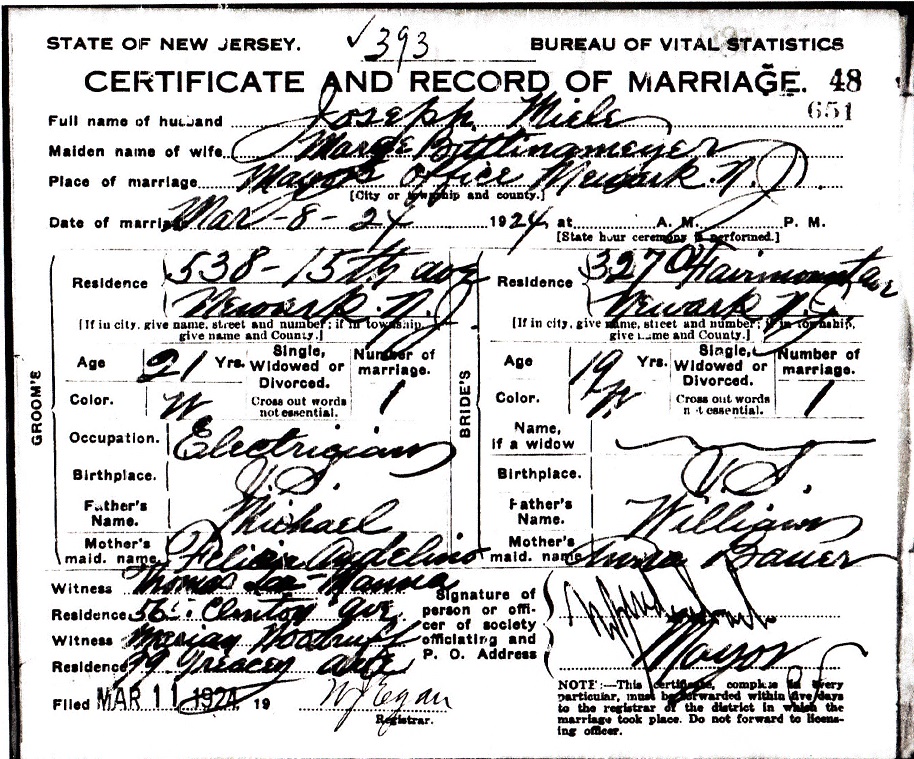 STATE OF NEW JERSEY. √393 BUREAU OF VITAL STATISTICS
CERTIFICATE AND RECORD OF MARRIAGE. 48
651
Full name of husband Joseph Miele
Maiden name of wife Marge Bottlingmeyer
Place of marriage Mayors Office Newark N.J.
[City or township and county.]
Date of marriage Mar-8-24 1924 at A. M. P. M.
[State hour ceremony is performed.]
GROOM'S
Residence 538-15th ave
Newark N.J.
[If in city, give name, street and number; if in township, give name and County.]
Age 21 Yrs. Single, Widowed or Divorced. Number of marriage.
Color. W Cross out words not essential. 1
Occupation. Electrician
Birthplace. U.S.
Father's Name. Michael
Mother's maid. name Felicia
BRIDE'S
Residence 327 Fairmount ave
Newark N.J.
[If in city, give name, street and number; if in township, give name and County.]
Age 19 Yrs. Single, Widowed or Divorced. Number of marriage.
Color. W Cross out words not essential. 1
Name, if a widow
Birthplace. U.S.
Father's Name. William
Mother's maid. name Anna Bauer
Witness Thomas La-Manna
Residence 56 Clinton ave
Witness Marian Woodruff
Residence 79 Treacey ave
Signature of person or officer of society officiating and P. O. Address
Mayor
Filed MAR 11 1924 19 W J Egan
Registrar.
NOTE:—This certificate, complete in every
particular, must be forwarded within five days
to the registrar of the district in which the
marriage took place. Do not forward to licens-
ing officer.